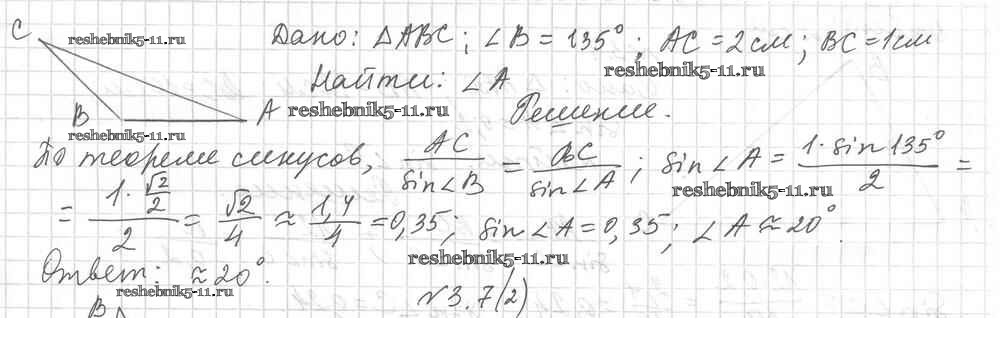 C
reshebnik5-11.ru
Дано: △ABC; ∠B = 135°; AC = 2 см; BC = 1 см
reshebnik5-11.ru
Найти: ∠A
reshebnik5-11.ru
B
A
Решение.
reshebnik5-11.ru
По теореме синусов, AC/sin∠B = BC/sin∠A; sin∠A = 1·sin135°/2 =
reshebnik5-11.ru
= (1·√2/2)/2 = √2/4 ≈ 1,4/4 = 0,35; sin∠A = 0,35; ∠A ≈ 20°.
reshebnik5-11.ru
Ответ: ≈ 20°.
reshebnik5-11.ru
№3.7(2)
B